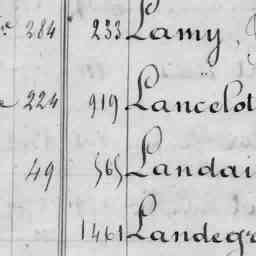 284 233 Lamy
224 919 Lancelot
49 565 Landai
1461 Landegr